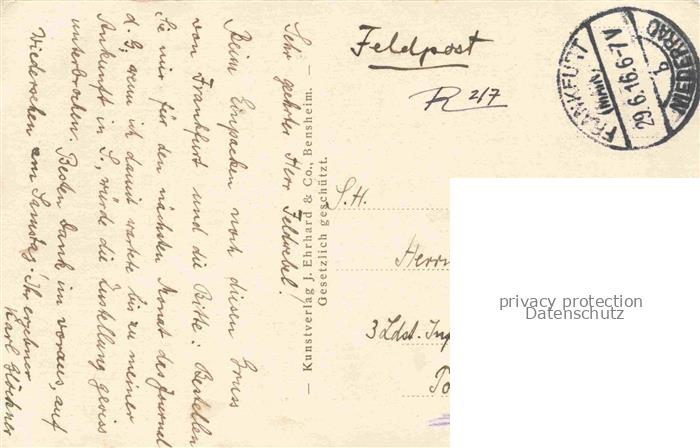 Feldpost
R 2/7
FRANKFURT (MAIN)
NIEDERRAD
29.6.16.6-7 V
b
S.H.
Herrn
3 Ldst.
privacy protection
Datenschutz
— Kunstverlag J. Ehrhard & Co., Bensheim. —
Gesetzlich geschützt.
Sehr geehrter Herr Feldwebel!
Beim Einpacken noch diesen Gruss
von Frankfurt und die Bitte: Bestellen
Sie mir für den nächsten Monat das Journal
d. G., wenn ich damit wartete bis zu meiner
Ankunft in S., würde die Zustellung gewiss
unterbrochen. Besten Dank im voraus, auf
Wiedersehen am Samstag. Ihr ergebener
Karl